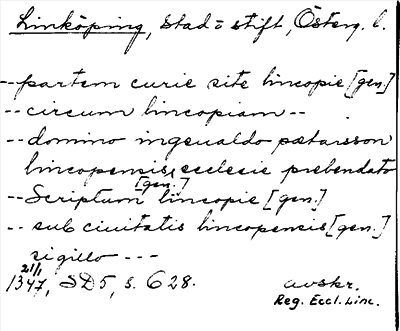 Linköping, Stad o stift, Österg. l.
-- partem curie site lincopie [gen.]
-- circum lincopiam --
-- domino ingeualdo pætarsson
lincopensis [gen.] ecclesie prebendato
-- Scriptum lincopie [gen.]
-- sub ciuitatis lincopensis [gen.]
sigillo ---
21/1
1347, SD 5, s. 628.
avskr.
Reg. Eccl. Linc.